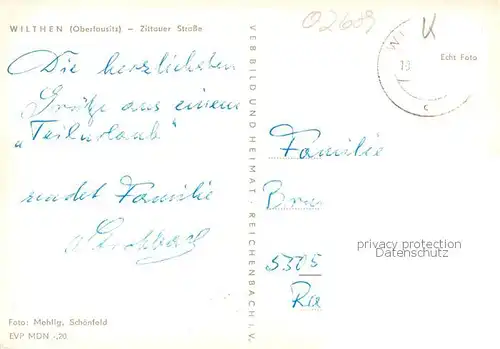 WILTHEN (Oberlausitz) – Zittauer Straße
02609
K
WI
Echt Foto
19
c
Die herzlichsten
Grüße aus einem
„Teilurlaub"
sendet Familie
VEB BILD UND HEIMAT · REICHENBACH I. V.
Familie
Bra
5305
Ra
privacy protection
Datenschutz
Foto: Mehlig, Schönfeld
EVP MDN -,20